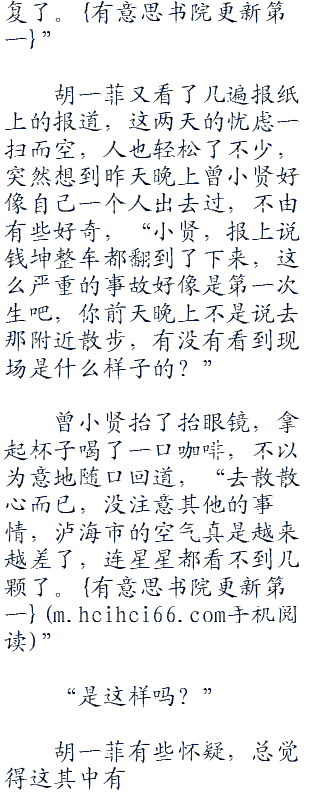 复了。{有意思书院更新第
一}”
胡一菲又看了几遍报纸
上的报道，这两天的忧虑一
扫而空，人也轻松了不少，
突然想到昨天晚上曾小贤好
像自己一个人出去过，不由
有些好奇，“小贤，报上说
钱坤整车都翻到了下来，这
么严重的事故好像是第一次
生吧，你前天晚上不是说去
那附近散步，有没有看到现
场是什么样子的？”
曾小贤抬了抬眼镜，拿
起杯子喝了一口咖啡，不以
为意地随口回道，“去散散
心而已，没注意其他的事
情，泸海市的空气真是越来
越差了，连星星都看不到几
颗了。{有意思书院更新第
一}(m.hcihci66.com手机阅
读)”
“是这样吗？”
胡一菲有些怀疑，总觉
得这其中有